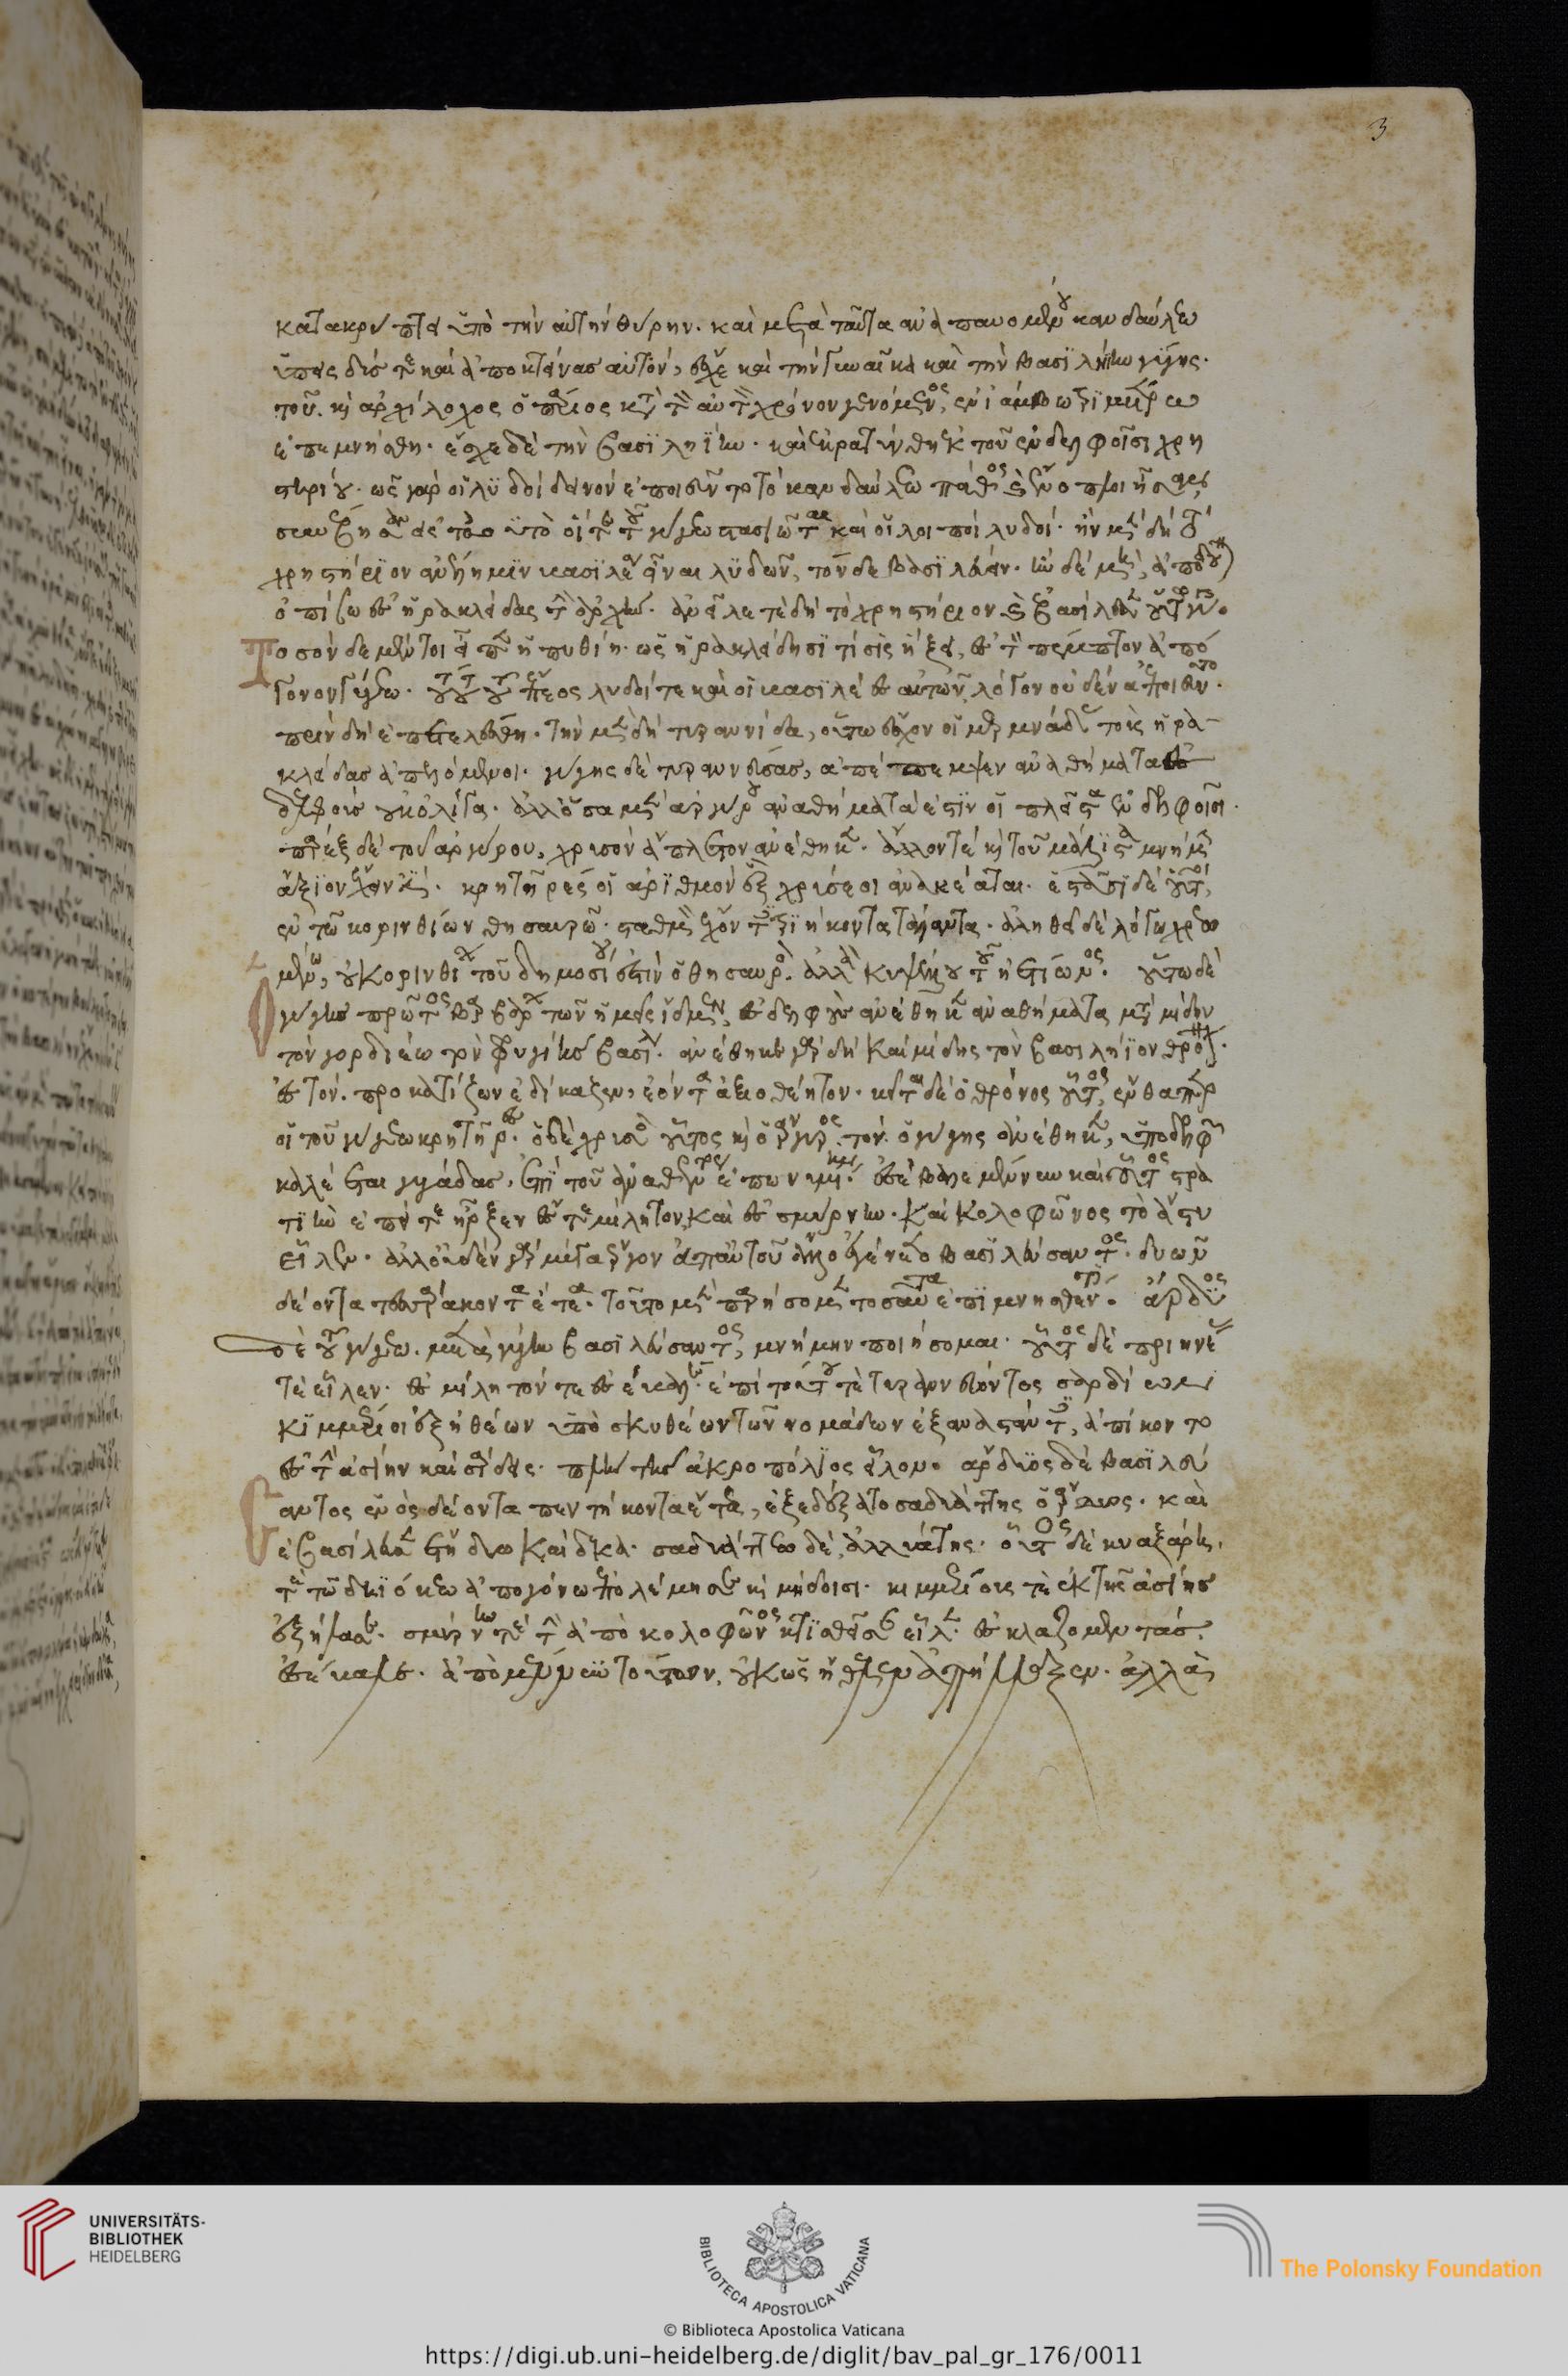 κατακρύπτει ὑπὸ τὴν αὐτὴν θύρην. καὶ μετὰ ταῦτα ἀναπαυομένου κανδαύλεω
ὑπεκδύς τε καὶ ἀποκτείνας αὐτόν, ἔσχε καὶ τὴν γυναῖκα καὶ τὴν βασιληΐην γύγης.
τοῦ. καὶ ἀρχίλοχος ὁ πάριος κατὰ τὸν αὐτὸν χρόνον γενόμενος, ἐν ἰάμβω τριμέτρω
ἐπεμνήσθη. ἔσχε δὲ τὴν βασιληΐην. καὶ ἐκρατύνθη ἐκ τοῦ ἐν δελφοῖσι χρη
στηρίου. ὡς γὰρ οἱ λυδοὶ δεινὸν ἐποιεῦντο τὸ κανδαύλεω πάθος καὶ ἐν ὅπλοισι ἦσαν,
συνέβησαν ἐς τὠυτὸ οἵ τε τοῦ γύγεω στασιῶται καὶ οἱ λοιποὶ λυδοί. ἢν μὲν δὴ τὸ
χρηστήριον ἀνέλη μιν βασιλέα εἶναι λυδῶν, τόνδε βασιλεύειν. ἢν δὲ μή, ἀποδοῦναι
ὀπίσω ἐς ἡρακλείδας τὴν ἀρχήν. ἀνεῖλέ τε δὴ τὸ χρηστήριον καὶ ἐβασίλευσε γύγης.
Τοσόνδε μέντοι εἶπε ἡ πυθίη. ὡς ἡρακλείδησι τίσις ἥξει, ἐς τὸν πέμπτον ἀπό
γονον γύγεω. τούτου τοῦ ἔπεος λυδοί τε καὶ οἱ βασιλέες αὐτῶν λόγον οὐδένα ἐποιεῦντο.
πρὶν δὴ ἐπετελέσθη. τὴν μὲν δὴ τυραννίδα, οὕτω ἔσχον οἱ μερμνάδαι τοὺς ἡρα-
κλείδας ἀπελόμενοι. γύγης δὲ τυραννεύσας, ἀπέπεμψεν ἀναθήματα ἐς
δελφοὺς οὐκ ὀλίγα. ἀλλ' ὅσα μὲν ἀργύρου ἀναθήματα ἔστιν οἱ πλεῖστα ἐν δελφοῖσι.
πάρεξ δὲ τοῦ ἀργύρου, χρυσὸν ἄπλετον ἀνέθηκε. ἄλλον τε καὶ τοῦ μάλιστα μνήμην
ἄξιον ἔχειν ἐστί. κρητῆρές οἱ ἀριθμὸν ἓξ χρύσεοι ἀνακέαται. ἑστᾶσι δὲ οὗτοι,
ἐν τῶ κορινθίων θησαυρῶ. σταθμὸν ἔχοντες τριήκοντα τάλαντα. ἀληθεῖ δὲ λόγω χρεω
μένω, οὐ κορινθίων τοῦ δημοσίου ἐστὶν ὁ θησαυρός. ἀλλὰ κυψέλου τοῦ ἠετίωνος. οὗτος δὲ
Ὁ γύγης πρῶτος βαρβάρων τῶν ἡμεῖς ἴδμεν, ἐς δελφοὺς ἀνέθηκε ἀναθήματα μετὰ μίδην
τὸν γορδιέω τὸν φρυγίης βασιλέα. ἀνέθηκε γὰρ δὴ καὶ μίδης τὸν βασιλήϊον θρόνον.
ἐς τὸν. προκατίζων ἐδίκαζεν, ἐόντα ἀξιοθέητον. κεῖται δὲ ὁ θρόνος οὗτος, ἔνθαπερ
οἱ τοῦ γύγεω κρητῆρες. ὁ δὲ χρυσὸς οὗτος καὶ ὁ ἄργυρος τὸν ὁ γύγης ἀνέθηκε, ὑπὸ δελφῶν
καλέεται γυγάδας, ἐπὶ τοῦ ἀναθέντος ἐπωνυμίην. ἐσέβαλε μέν νυν καὶ οὗτος στρα
τιὴν ἐπεί τε ἦρξεν ἔς τε μίλητον καὶ ἐς σμύρνην. καὶ κολοφῶνος τὸ ἄστυ
εἷλεν. ἀλλ' οὐδὲν γὰρ μέγα ἔργον ἀπ' αὐτοῦ ἄλλο ἐγένετο βασιλεύσαντος. δυῶν
δέοντα τεσσεράκοντα ἔτεα. τοῦτον μὲν παρήσομεν τοσαῦτα ἐπιμνησθέντες. ἄρδυος
δὲ τοῦ γύγεω. μετὰ γύγην βασιλεύσαντος, μνήμην ποιήσομαι. οὗτος δὲ πριηνέας
τε εἷλεν. ἐς μίλητόν τε ἐσέβαλε. ἐπὶ τούτου τε τυραννεύοντος σαρδίων
κιμμέριοι ἐξ ἠθέων ὑπὸ σκυθέων τῶν νομάδων ἐξαναστάντες, ἀπίκοντο
ἐς τὴν ἀσίην καὶ σάρδις. πλὴν τῆς ἀκροπόλιος εἷλον. ἄρδυος δὲ βασιλεύ
σαντος ἑνὸς δέοντα πεντήκοντα ἔτεα, ἐξεδέξατο σαδυάττης ὁ ἄρδυος. καὶ
ἐβασίλευσε ἔτη δυώδεκα. σαδυάττεω δὲ, ἀλυάττης. οὗτος δὲ κυαξάρη,
τε τῶ δηϊόκεω ἀπογόνω ἐπολέμησε καὶ μήδοισι. κιμμερίους τε ἐκ τῆς ἀσίης
ἐξήλασε. σμύρνην τε τὴν ἀπὸ κολοφῶνος κτισθεῖσαν εἷλε. ἐς κλαζομενάς τε
ἐσέβαλε. ἀπὸ μέν νυν τούτων, οὐκ ὡς ἤθελεν ἀπήλλαξεν. ἀλλὰ
3
UNIVERSITÄTS-
BIBLIOTHEK
HEIDELBERG
BIBLIOTECA APOSTOLICA VATICANA
The Polonsky Foundation
© Biblioteca Apostolica Vaticana
https://digi.ub.uni-heidelberg.de/diglit/bav_pal_gr_176/0011